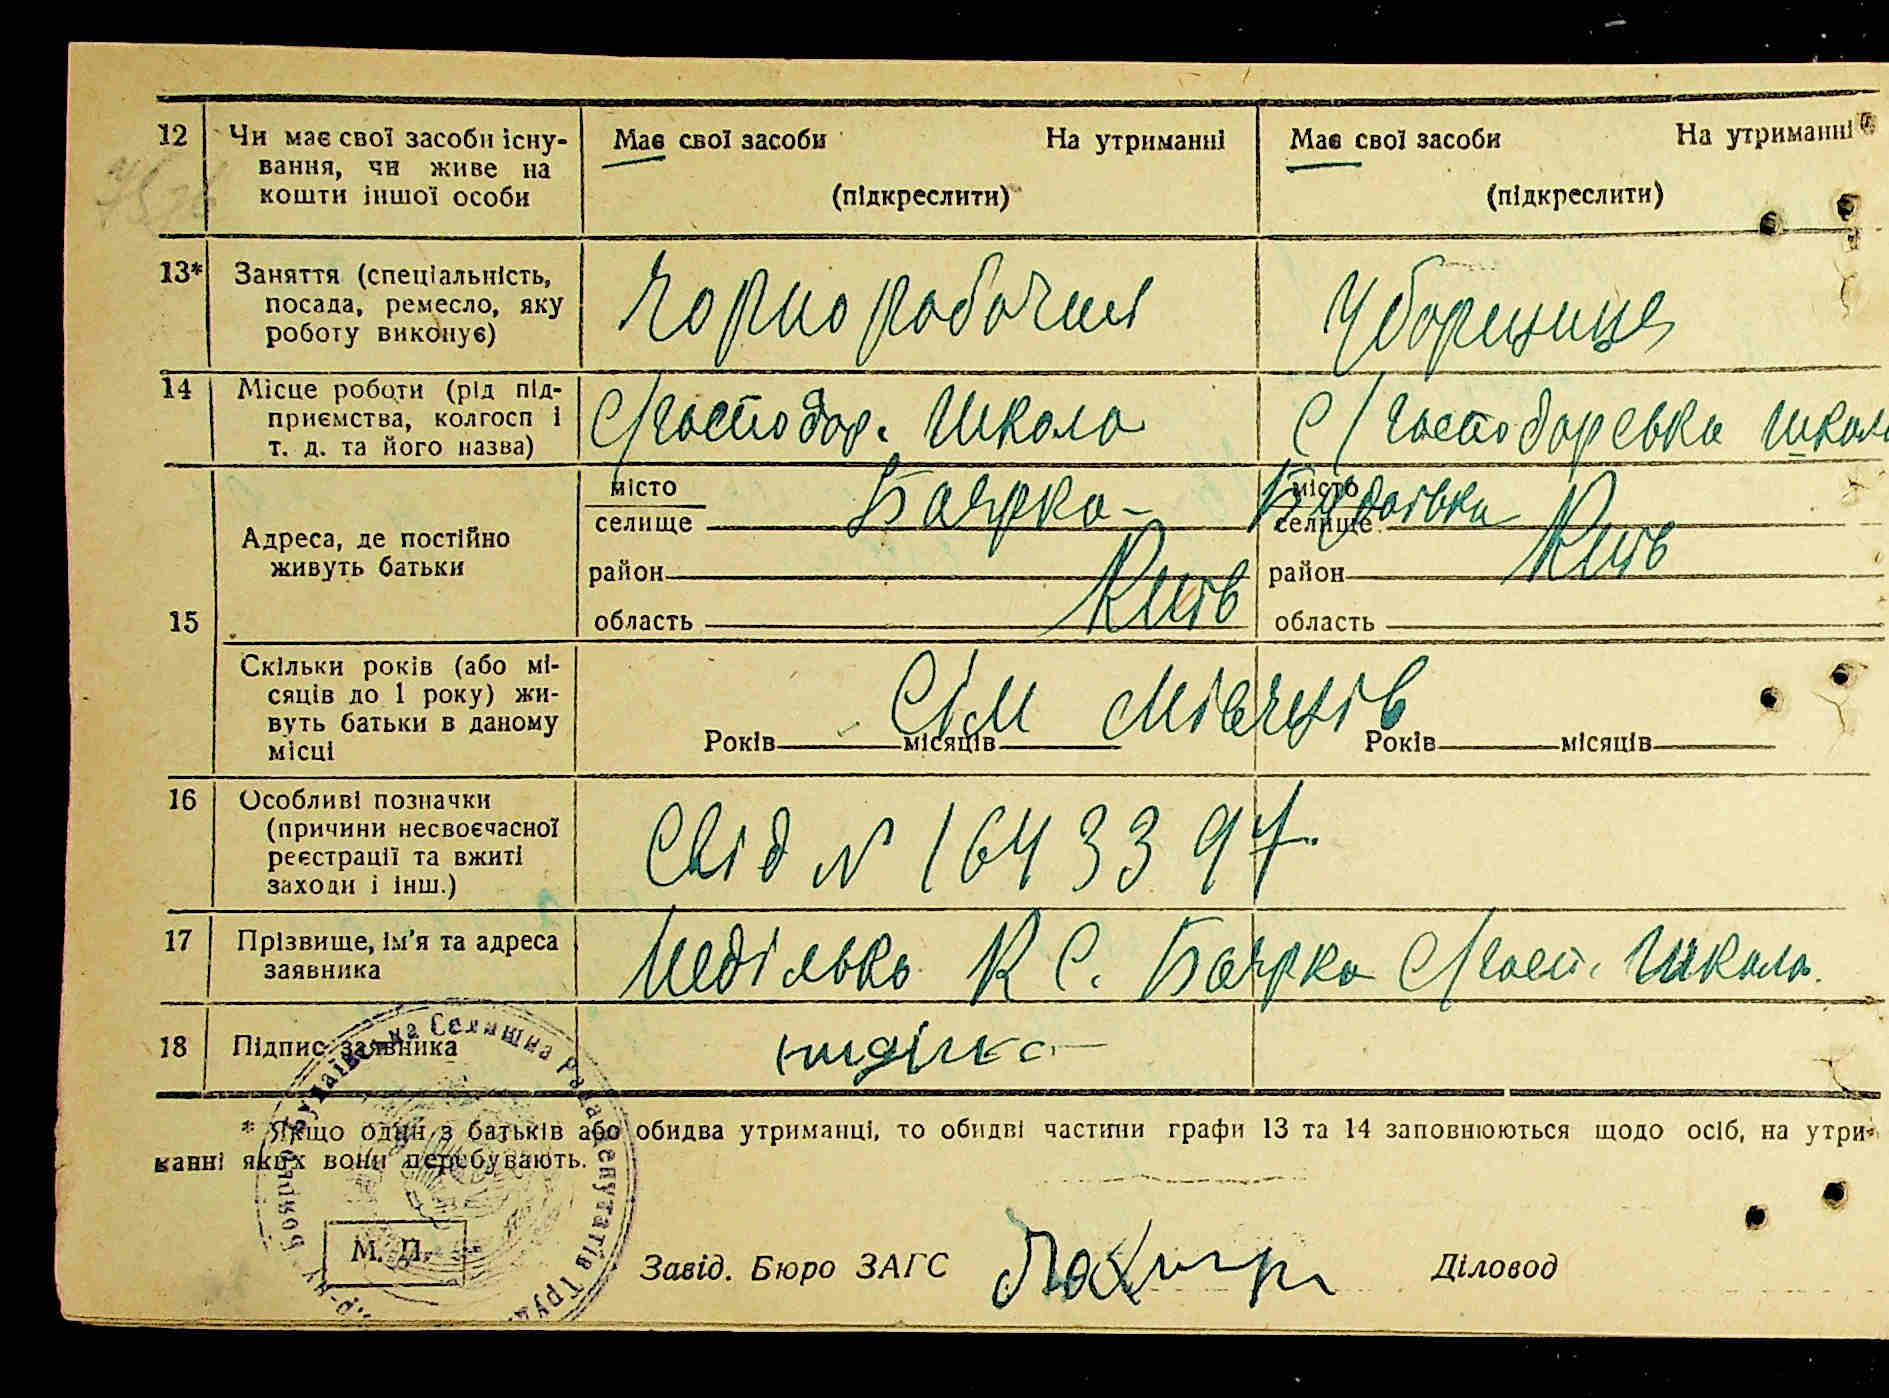 12 Чи має свої засоби існу- Має свої засоби На утриманні Має свої засоби На утриманні
вання, чи живе на
кошти іншої особи (підкреслити) (підкреслити)
13* Заняття (спеціальність,
посада, ремесло, яку Чорноробочий Уборщиця
роботу виконує)
14 Місце роботи (рід під-
приємства, колгосп і С/господар. Школа С/господарська школа
т. д. та його назва)
місто Боярка- Будаївка місто
селище селище
Адреса, де постійно
живуть батьки
район район Київ
15 область Київ область
Скільки років (або мі-
сяців до 1 року) жи- Сім місяців
вуть батьки в даному
місці Років місяців Років місяців
16 Особливі позначки
(причини несвоєчасної
реєстрації та вжиті Свід N 1643397
заходи і інш.)
17 Прізвище, ім'я та адреса
заявника Неділько К С. Боярка С/госп. Школа.
18 Підпис заявника неділко
* Якщо один з батьків або обидва утриманці, то обидві частини графи 13 та 14 заповнюються щодо осіб, на утри-
манні яких вони перебувають.
Боярсько-Будаївська Селищна Рада Депутатів Труд
М. П.
Завід. Бюро ЗАГС Діловод